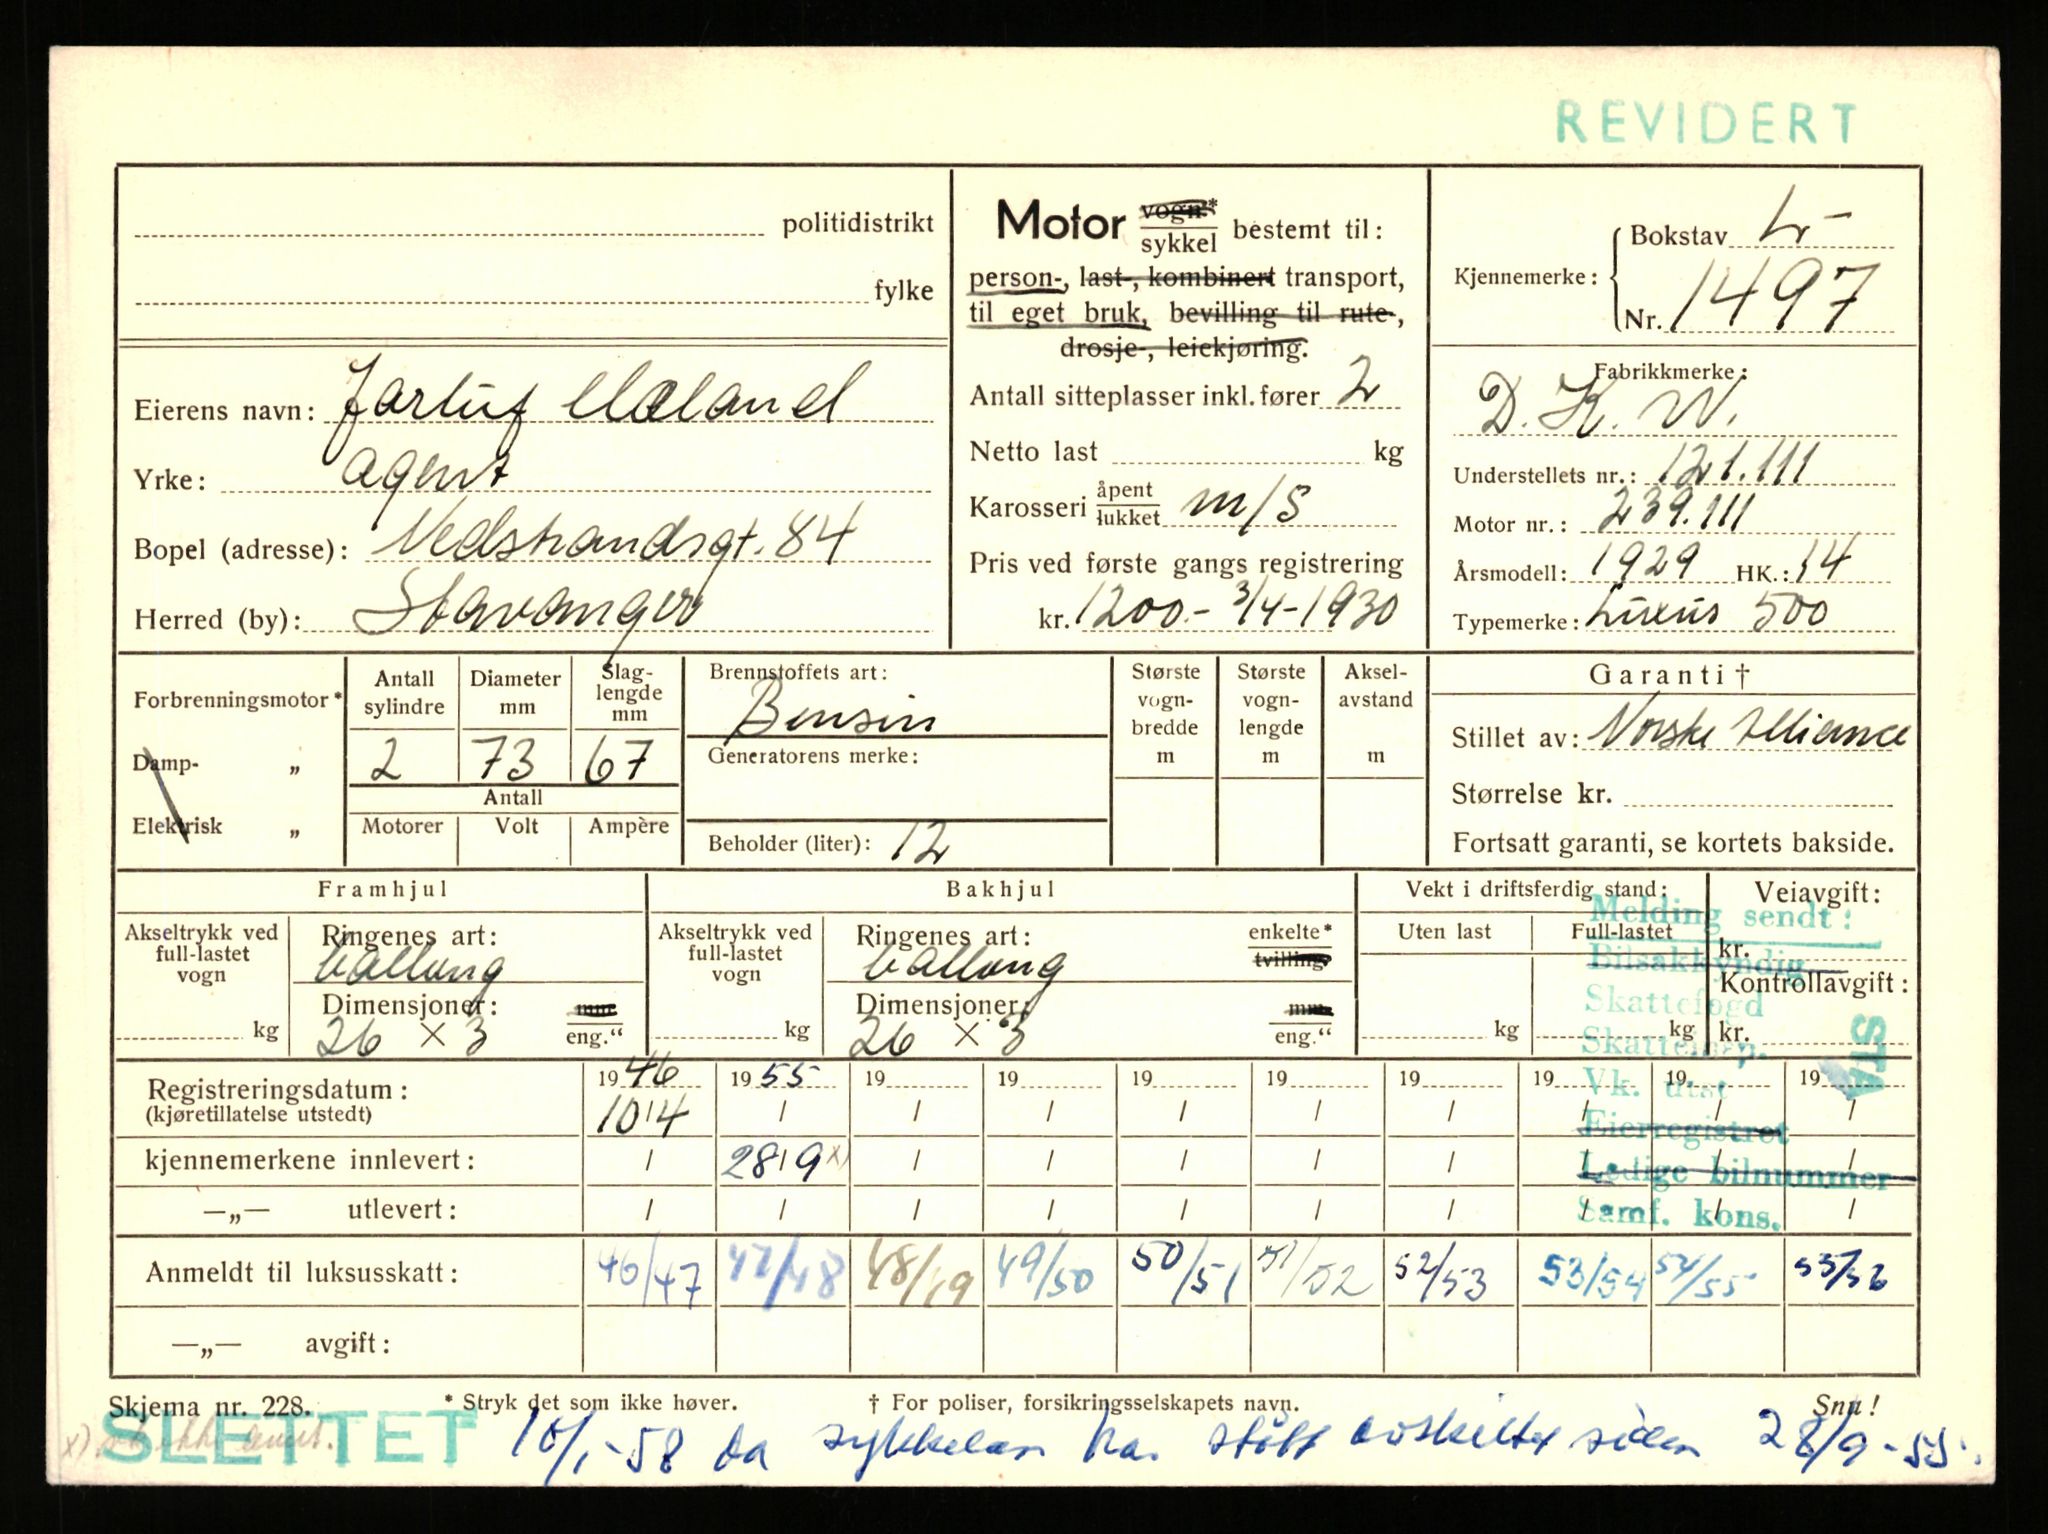 REVIDERT
politidistrikt
fylke
Eierens navn: Jarluf Mæland
Yrke: agent
Bopel (adresse): Nedstrandsgt. 84
Herred (by): Stavanger
Motor vogn* / sykkel bestemt til:
person-, last-, kombinert transport,
til eget bruk, bevilling til rute-,
drosje-, leiekjøring.
Antall sitteplasser inkl. fører 2
Netto last kg
Karosseri åpent / lukket m/s
Pris ved første gangs registrering
kr. 1200.- 3/4-1930
Kjennemerke: Bokstav L-
Nr. 1497
Fabrikkmerke:
D.K.W.
Understellets nr.: 121.111
Motor nr.: 239.111
Årsmodell: 1929 HK.: 14
Typemerke: Luxus 500
Forbrenningsmotor*
Damp- „
Elektrisk „
Antall sylindre 2
Diameter mm 73
Slag-lengde mm 67
Antall
Motorer Volt Ampère
Brennstoffets art:
Bensin
Generatorens merke:
Beholder (liter): 12
Største vogn-bredde m
Største vogn-lengde m
Aksel-avstand m
Garanti †
Stillet av: Norske Alliance
Størrelse kr.
Fortsatt garanti, se kortets bakside.
Framhjul
Akseltrykk ved full-lastet vogn
kg
Ringenes art:
ballong
Dimensjoner: mm / eng."
26 × 3
Bakhjul
Akseltrykk ved full-lastet vogn
kg
Ringenes art: enkelte* / tvilling.
ballong
Dimensjoner: mm. / eng."
26 × 3
Vekt i driftsferdig stand:
Uten last Full-lastet
kg kg
Veiavgift:
kr.
Kontrollavgift:
kr.
Melding sendt:
Bilsakkyndig
Skattefogd
Vk. utst
Eierregistret
Ledige bilnummer
Samf. kons.
STA
Registreringsdatum: 1946 1955 19 19 19 19 19 19 19 19
(kjøretillatelse utstedt) 10/4 / / / / / / / / /
kjennemerkene innlevert: / 28/9 x) / / / / / / / /
—„— utlevert: / / / / / / / / / /
Anmeldt til luksusskatt: 46/47 47/48 48/49 49/50 50/51 51/52 52/53 53/54 54/55 55/56
—„— avgift:
Skjema nr. 228. * Stryk det som ikke høver. † For poliser, forsikringsselskapets navn. Snu!
SLETTET 10/1-58 da sykkelen har stått avskiltet siden 28/9-55.